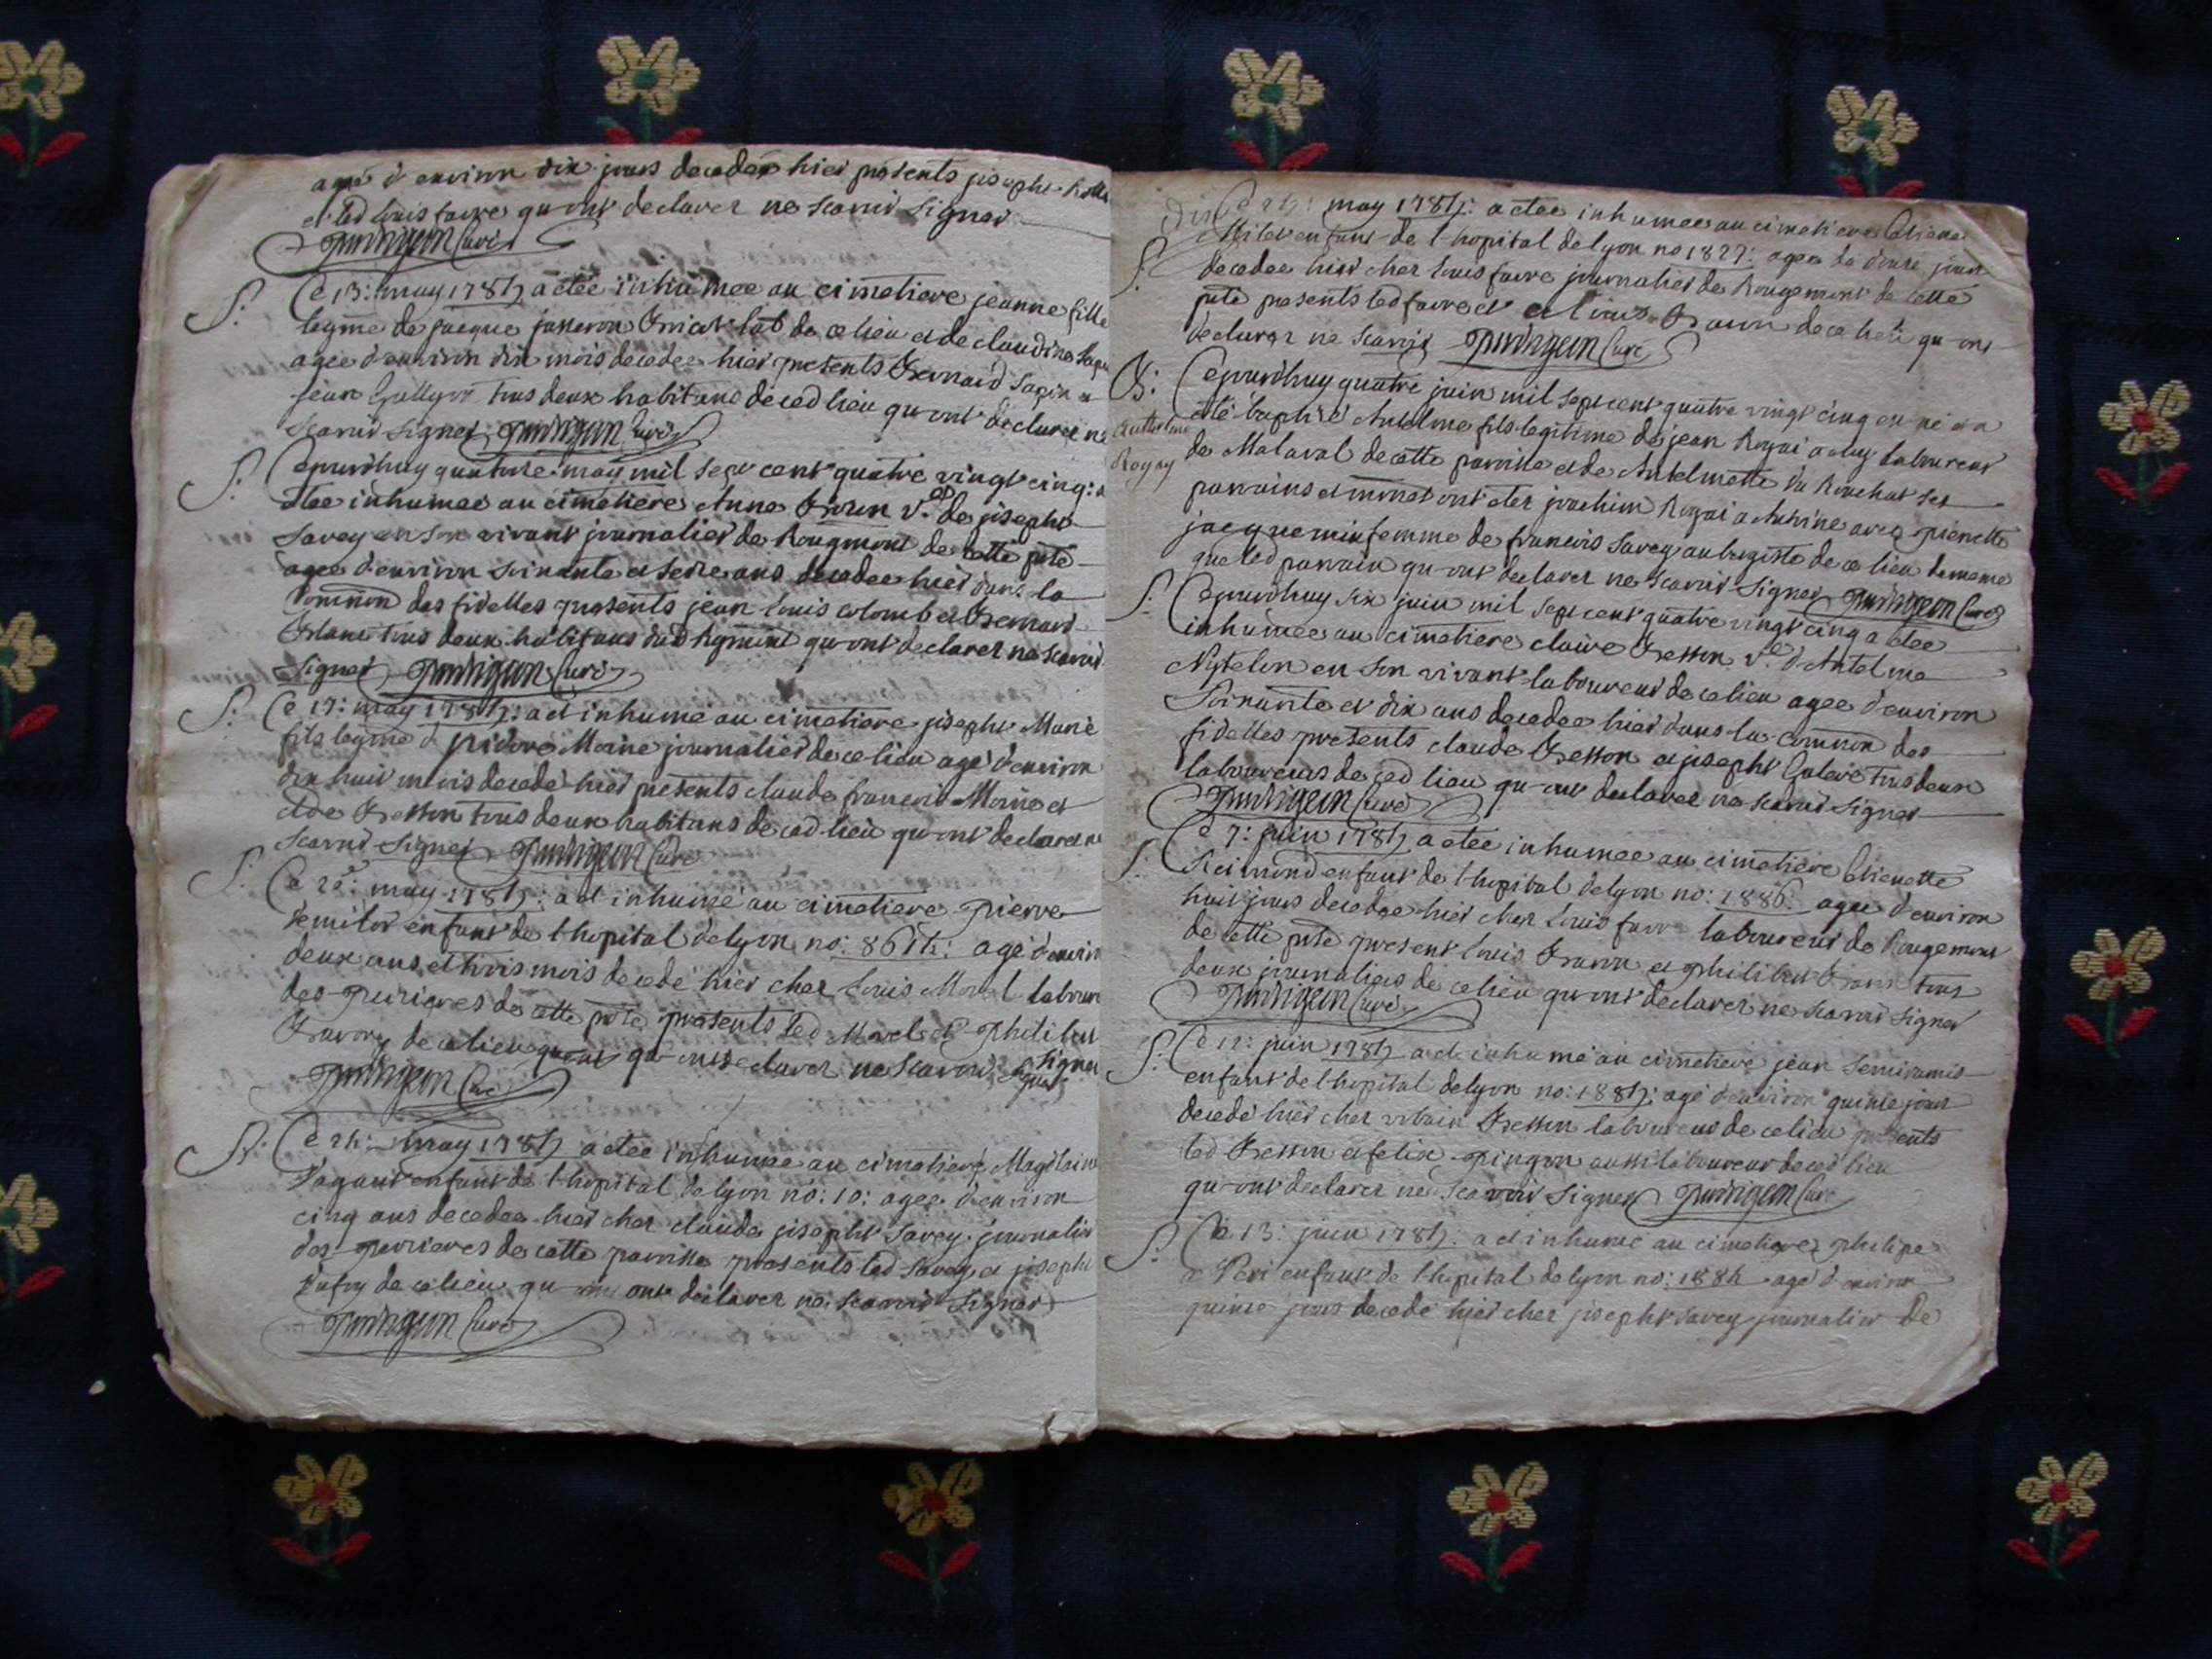 agé d'environ dix jours decedée hier presents joseph
et led louis favre qu ont declarer ne scavoir signer
Curé
S: Ce 13: may 1785 a etée inhumée au cimetiere jeanne fille
legme de jacque janneron lab de ce lieu et de claudine
agée d'environ dix mois decedée hier presents Bernard Sapin et
jean tous deux habitans de ced lieu qu ont declarer ne
scavoir signer Curé
S: Cejourdhuy quatorze may mil sept cent quatre vingt cinq: a
etée inhumée au cimetiere Anne ve de joseph
Savey en son vivant journalier de Rougemont de cette psse
agée d'environ soixante et seize ans decedée hier dans la
common des fidelles presents jean louis colomb et Bernard
tous deux habitans dud qu ont declarer ne scavoir
signer Curé
S: Ce 17: may 1785: a et inhumé au cimetiere joseph Marie
fils legme d' Moine journalier de ce lieu agé d'environ
dix huit mois decedé hier presents claude francois Moine et
Cde Besson tous deux habitans de ced lieu qu ont declarer ne
scavoir signer Curé
S: Ce may 1785: a et inhumé au cimetiere pierre
enfant de l hopital de lyon no: agé d'environ
deux ans et trois mois decedé hier chez louis Morel
des perrieres de cette psse presents led Morel et philibert
de ce lieu qu ont declarer ne scavoir signer
Curé
S: Ce 24: may 1785 a etée inhumée au cimetiere Magdelaine
enfant de l hopital de lyon no: 10: agée d'environ
cinq ans decedée hier chez claude joseph Savey journalier
des perrieres de cette parroisse presents led Savey et joseph
de ce lieu qu ont declarer ne scavoir signer
Curé
Ce may 1785: a etée inhumée au cimetiere
enfant de l hopital de lyon no 1827: agée de douze jours
S: decedée hier chez louis favre journalier de Rougemont de cette
psse presents led favre et et louis de ce lieu qu ont
declarer ne scavoir Curé
B: Cejourdhuy quatre juin mil sept cent quatre vingt cinq est né et a
Anthelme
Royay
eté baptisé Antelme fils legitime de jean Royai laboureur
de Malaval de cette parroisse et de Antelmette du Rouchat ses
parrains et ont eter joachim Royai a avec pierrette
jacquemin femme de francois Savey aubergiste de ce lieu
que led parrain qu ont declarer ne scavoir signer Curé
S: Cejourdhuy six juin mil sept cent quatre vingt cinq a etée
inhumée au cimetiere claire Besson ve d'Antelme
en son vivant laboureur de ce lieu agée d'environ
Soixante et dix ans decedée hier dans la common des
fidelles presents claude Besson et joseph tous deux
laboureurs de ced lieu qu ont declarer ne scavoir signer
Curé
S: Ce 7: juin 1785 a etée inhumée au cimetiere
enfant de l hopital de lyon no: 1886: agée d'environ
huit jours decedée hier chez louis favre laboureur de Rougemont
de cette psse present louis et philibert tous
deux journaliers de ce lieu qu ont declarer ne scavoir signer
Curé
S: Ce 12: juin 1785 a et inhumé au cimetiere jean Semiramis
enfant de l hopital de lyon no: 1885: agé d'environ quinze jours
decedé hier chez urbain Besson laboureur de ce lieu presents
led Besson et felix pingon aussi laboureur de ced lieu
qu ont declarer ne scavoir signer Curé
S: Ce 13: juin 1785: a et inhumé au cimetiere philipe
enfant de l hopital de lyon no: 1884 agé d'environ
quinze jours decedé hier chez joseph Savey journalier de